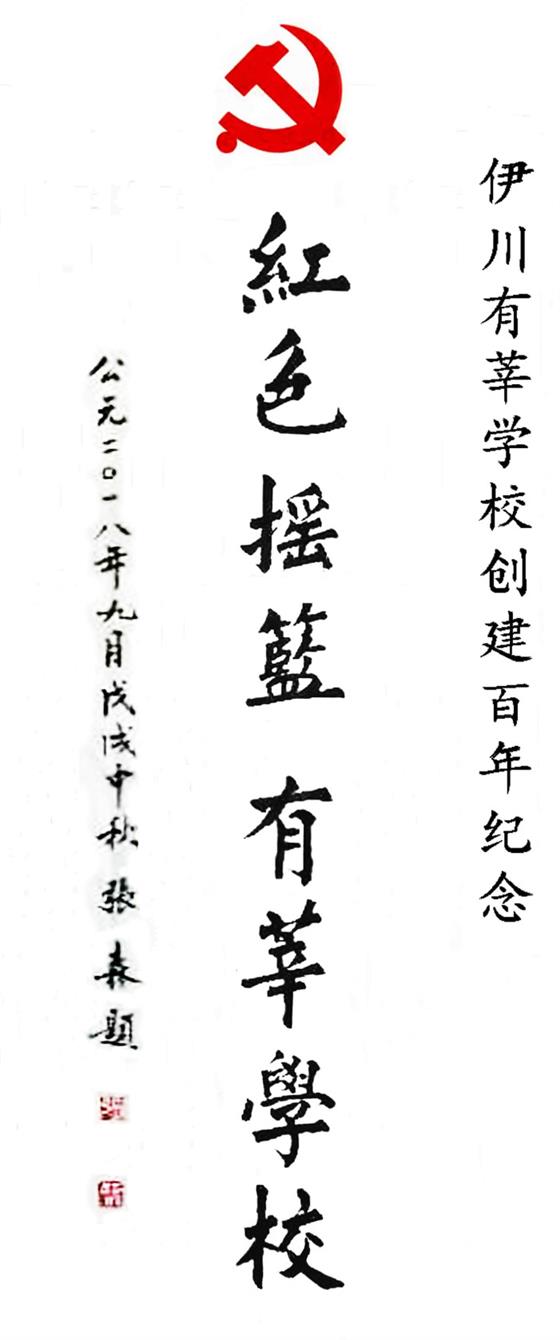 伊川有莘学校创建百年纪念
紅色摇籃 有莘學校
公元二〇一八年九月戊戌中秋 張森題